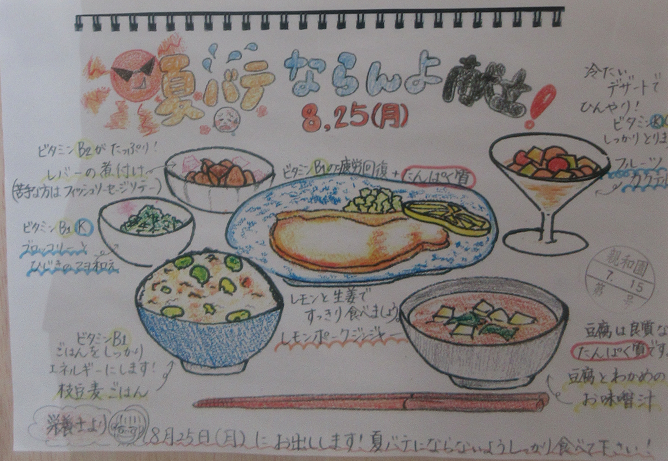 夏バテ ならんよ 献立!
8,25(月)
冷たい
デザートで
ひんやり!
ビタミン
しっかりとりま
フルーツ
ビタミンB2がたっぷり!
レバーの煮付け
(苦手な方はフィッシュソーセージソテー)
ビタミンB1の疲労回復+たんぱく質
ビタミンB1 K
ブロッコリーと
ひじきのマヨ和え
レモンと生姜で
すっきり食べましょう
レモンポークジンジャー
ビタミンB1
ごはんをしっかり
エネルギーにします!
枝豆麦ごはん
親和園
7.15
豆腐は良質な
たんぱく質です
豆腐とわかめの
お味噌汁
栄養士より
8月25日(月)にお出しします!夏バテにならないようしっかり食べて下さい!